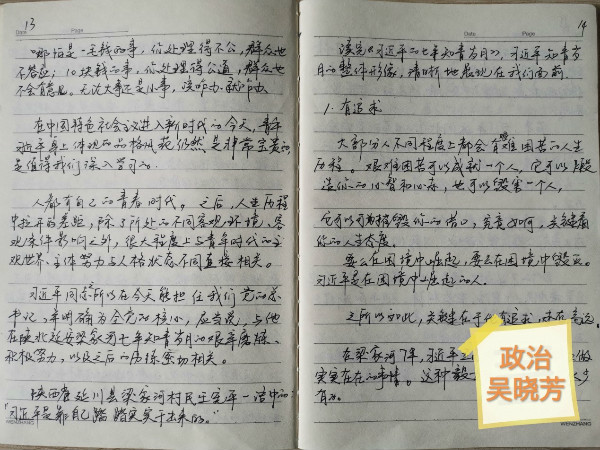 13
Date Page
"哪怕是一毛钱的事，你处理得不公，群众也
不答应；10块钱的事，你处理得公道，群众也
不会有意见。无论大事还是小事，该咋办就咋办
在中国特色社会主义进入新时代的今天，青年
习近平身上体现的品格风范仍然是非常宝贵的
是值得我们深入学习的。
人都有自己的青春时代。之后，人生历程
中拉开的差距，除了所处的不同客观环境、客
观条件影响之外，很大程度上与青年时代的主
观世界、主体努力与人格状态不同直接相关。
习近平同志所以在今天能担任我们党的总
书记，并明确为全党的核心，应当说，与他
在陕北延安梁家河七年知青岁月的艰辛磨练、
积极努力，以及之后的历练密切相关。
陕西省延川县梁家河村民王宪平一语中的
"习近平是靠自己踏踏实实干出来的。"
WENZHANG
14
Date Page
读完《习近平的七年知青岁月》，习近平知青岁
月的整体形像，清晰地展现在我们面前。
1.有追求
大部分人不同程度上都会有艰难困苦的人生
历程。艰难困苦可以成就一个人，它可以锻
造你的心智和心态，也可以毁害一个人，
它可以可为摧毁你的借口，究竟如何，关键看
你的人生态度。
要么在困境中崛起，要么在困境中毁灭。
习近平是在困境中崛起的人。
之所以如此，关键在于他有追求，
在梁家河7年，习近平 做
实实在在的事情。这种
有的。
政治
吴晓芳
WENZHANG